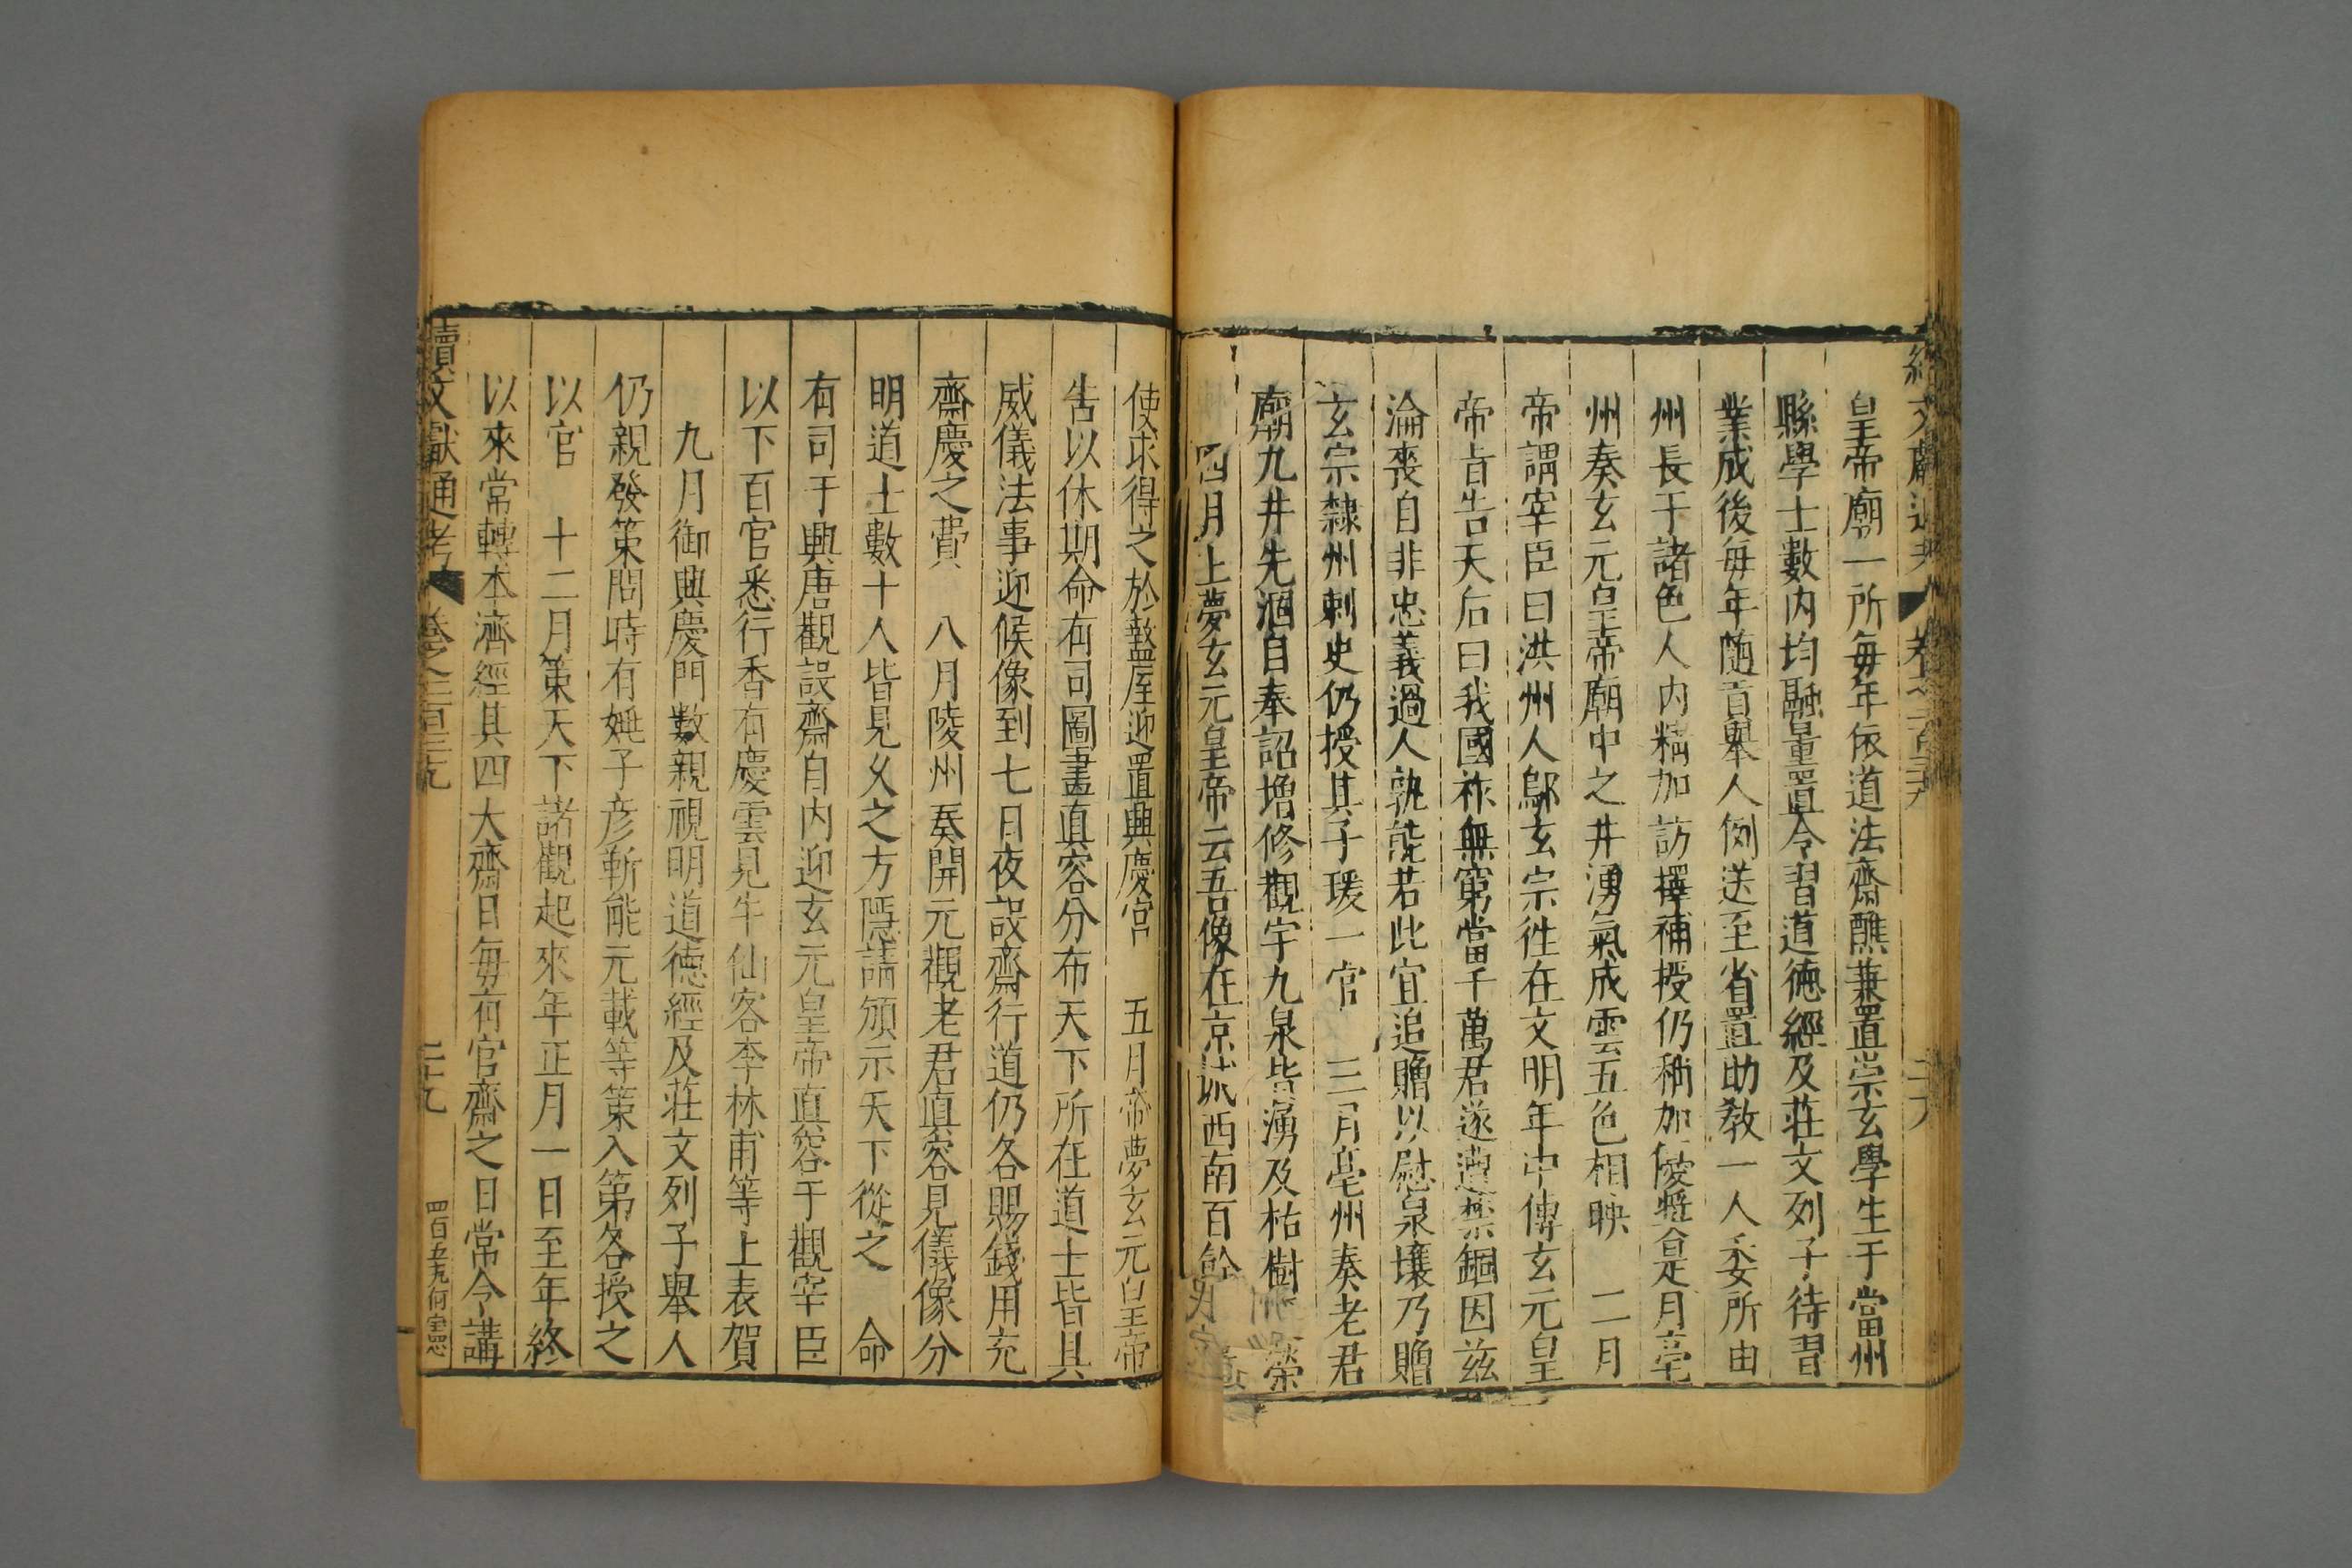 皇帝廟一所每年依道法齋醮兼置崇玄學生于當州
縣學士數內均融量置令習道德經及莊文列子待習
業成後每年隨貢舉人例送至省置助教一人委所由
州長于諸色人內精加訪擇補授仍稍加優奬是月亳
州奏玄元皇帝廟中之井湧氣成雲五色相映 二月
帝謂宰臣曰洪州人鄔玄宗徃在文明年中傳玄元皇
帝旨告天后曰我國祚無窮當千萬君遂遭禁錮因茲
淪喪自非忠義過人孰能若此宜追贈以慰泉壤乃贈
玄宗隸州刺史仍授其子瑗一官 三月亳州奏老君
廟九井先涸自奉詔增修觀宇九泉皆湧及枯樹 榮
四月上夢玄元皇帝云吾像在京城西南百餘
使求得之於盩厔迎置興慶宮 五月帝夢玄元皇帝
告以休期命有司圖畫真容分布天下所在道士皆具
威儀法事迎候像到七日夜設齋行道仍各賜錢用充
齋慶之費 八月陵州奏開元觀老君真容見儀像分
明道士數十人皆見乂之方隱請頒示天下從之 命
有司于興唐觀設齋自內迎玄元皇帝真容于觀宰臣
以下百官悉行香有慶雲見牛仙客李林甫等上表賀
九月御興慶門數親視明道德經及莊文列子舉人
仍親發策問時有姚子彥靳能元載等策入第各授之
以官 十二月策天下諸觀起來年正月一日至年終
以來常轉本濟經其四大齋日每有官齋之日常令講
續文獻通考 卷之二百三九 二十九 四百五九何宝四